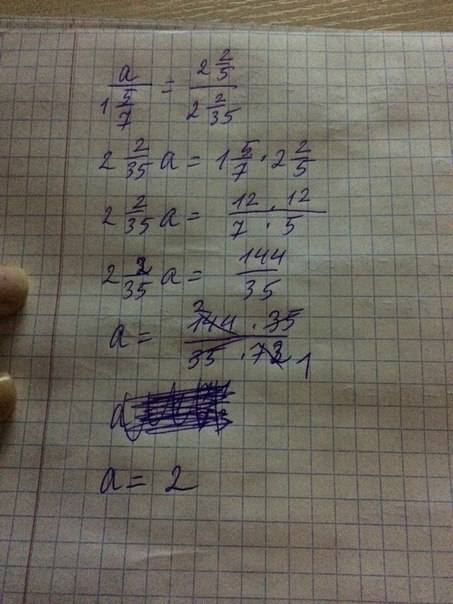 a / 1 5/7 = 2 2/5 / 2 2/35
2 2/35 a = 1 5/7 · 2 2/5
2 2/35 a = 12 · 12 / 7 · 5
2 2/35 a = 144 / 35
a = 144 2 · 35 / 35 · 72 1
a
a = 2